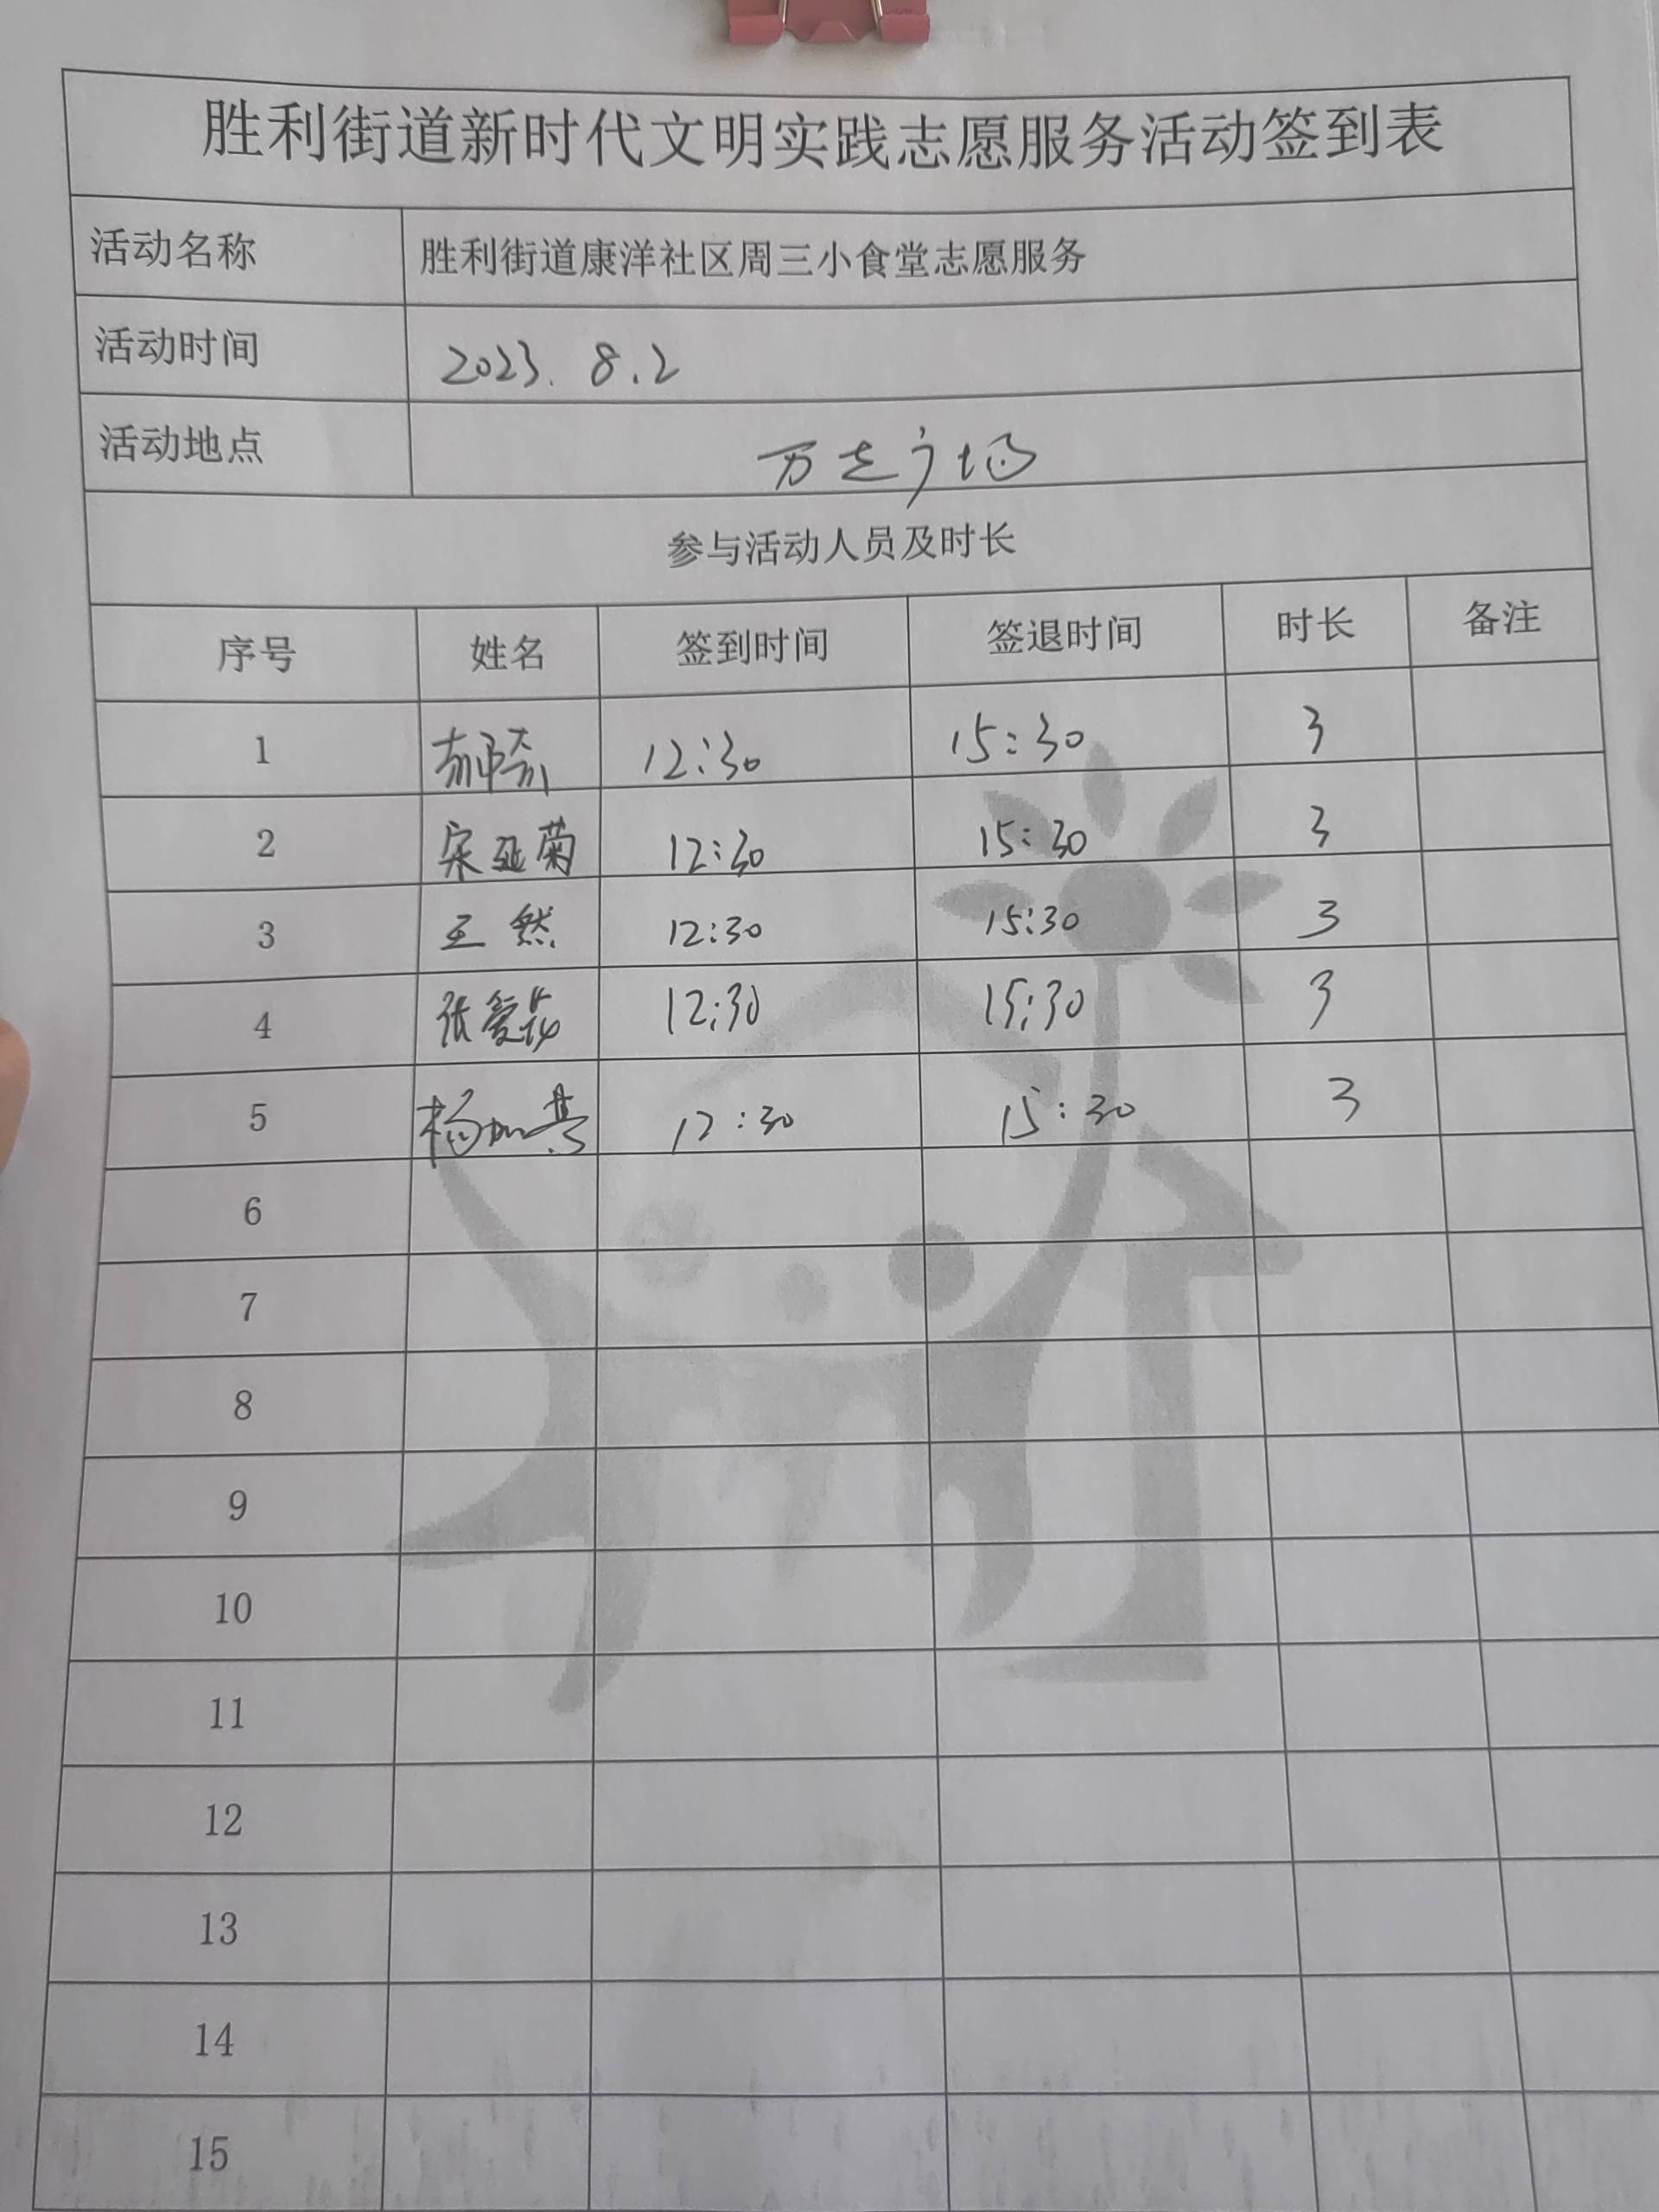 胜利街道新时代文明实践志愿服务活动签到表
活动名称 胜利街道康洋社区周三小食堂志愿服务
活动时间 2023. 8.2
活动地点 万达广场
参与活动人员及时长
序号 姓名 签到时间 签退时间 时长 备注
1 12:30 15:30 3
2 宋延菊 12:30 15:30 3
3 王然 12:30 15:30 3
4 张爱 12:30 15:30 3
5 杨 12:30 15:30 3
6
7
8
9
10
11
12
13
14
15